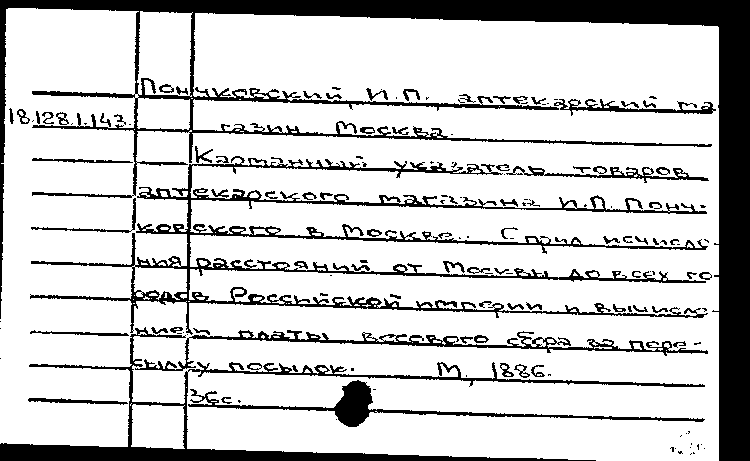 Пончковский, И.П., аптекарский ма-
18.128.1.143. газин. Москва.
Карманный указатель товаров
аптекарского магазина И.П. Понч-
ковского в Москве. С прил. исчисле-
ния расстояний от Москвы до всех го-
родов Российской империи и вычисле-
нием платы весового сбора за пере-
сылку посылок. М., 1886.
36с.